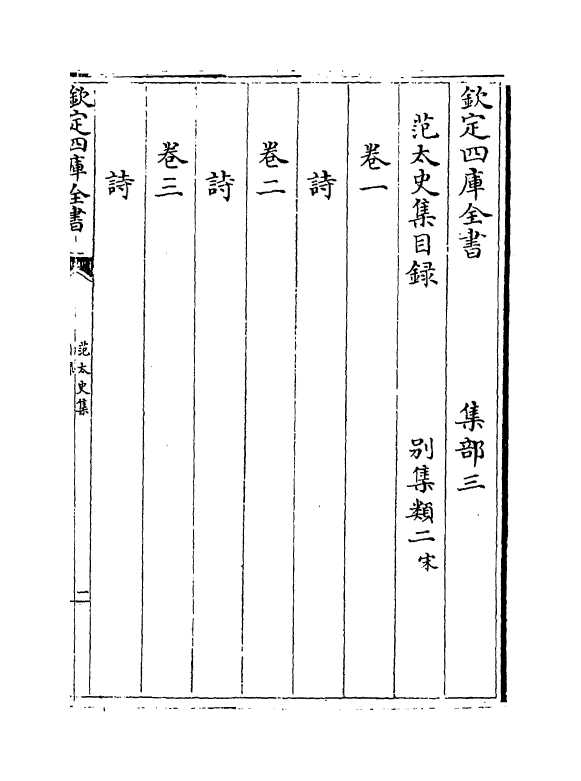 欽定四庫全書
集部三
范太史集目録
別集類二宋
卷一
詩
卷二
詩
卷三
詩
欽定四庫全書
范太史集
一